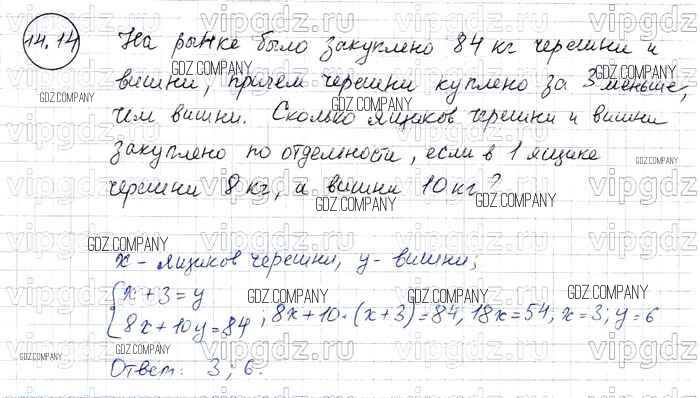 14.14 На рынке было закуплено 84 кг черешни и
вишни, причем черешни куплено на 3 меньше,
чем вишни. Сколько ящиков черешни и вишни
закуплено по отдельности, если в 1 ящике
черешни 8 кг, а вишни 10 кг?
x - ящиков черешни, y - вишни;
{x + 3 = y
{8x + 10y = 84; 8x + 10 · (x + 3) = 84, 18x = 54, x = 3; y = 6
Ответ: 3; 6.
vipgdz.ru
GDZ.COMPANY